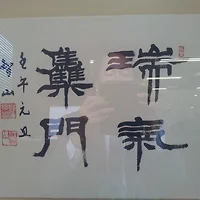 瑞氣
雧門
壬午元旦
智山